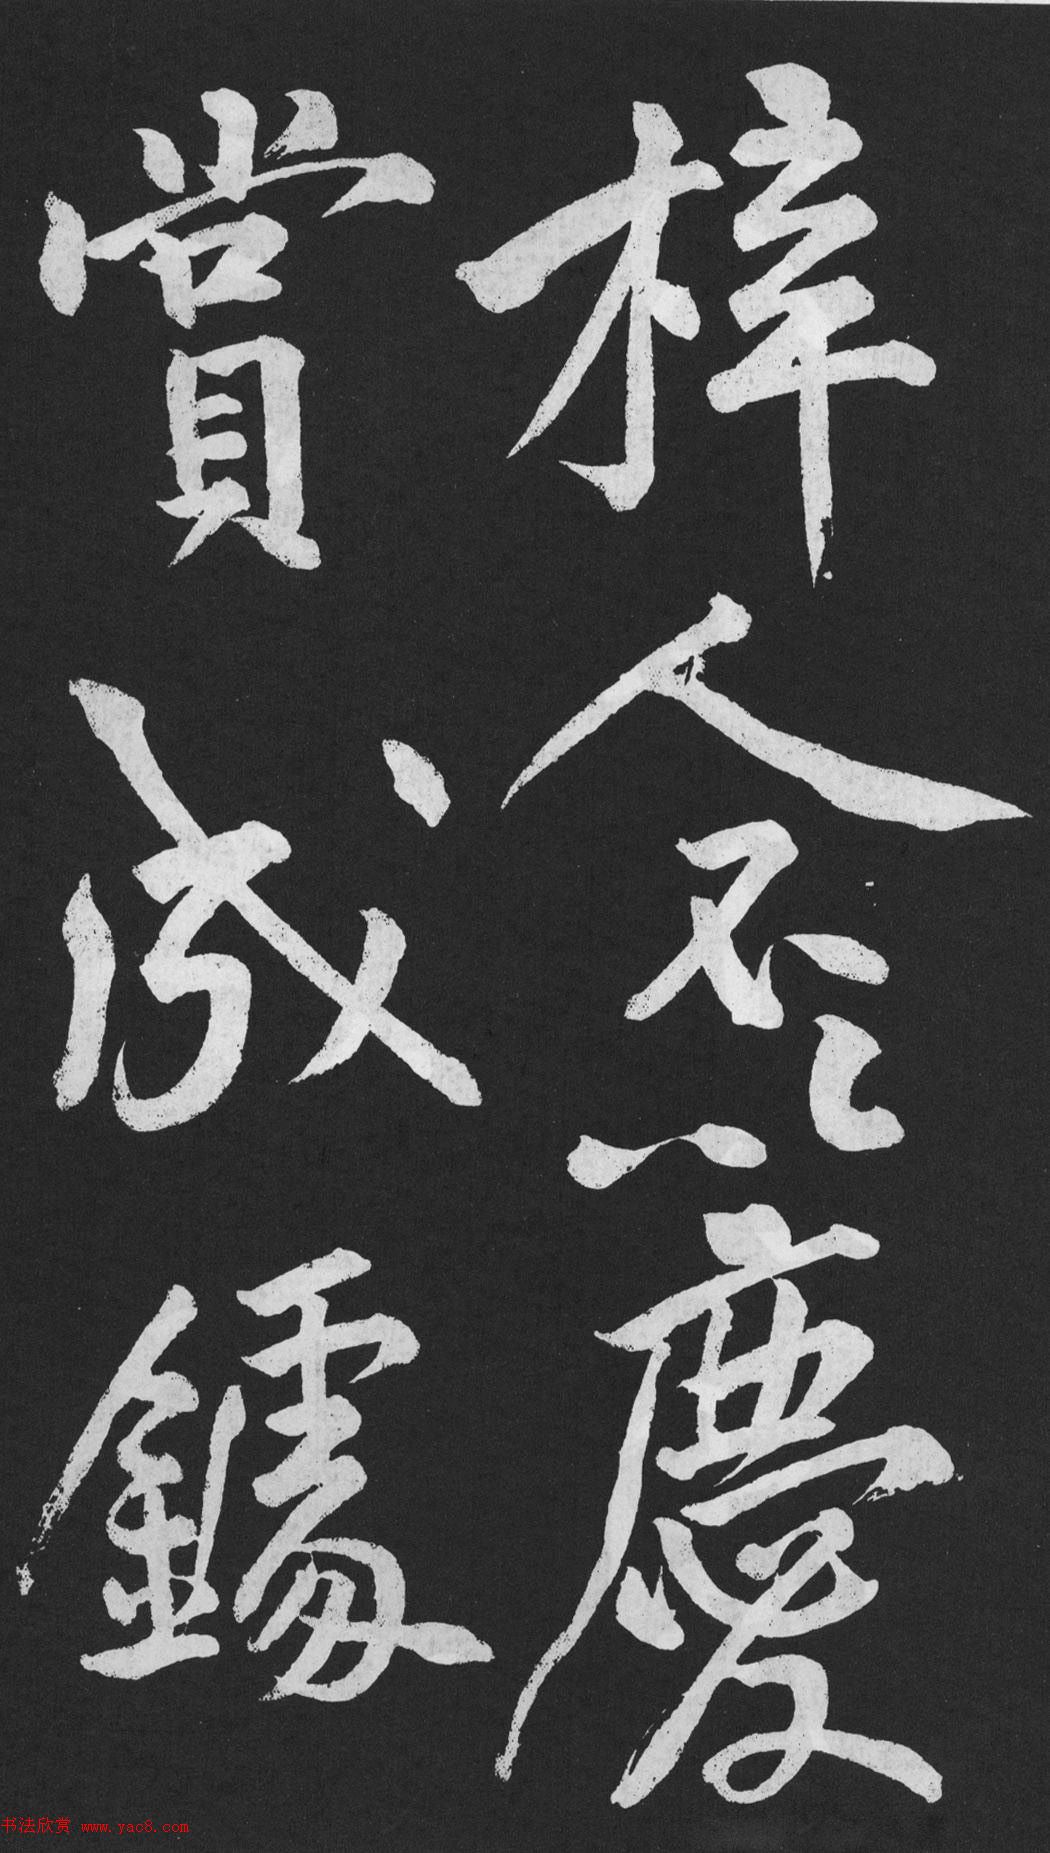 梓人不以慶
賞成鐻
书法欣赏 www.yac8.com